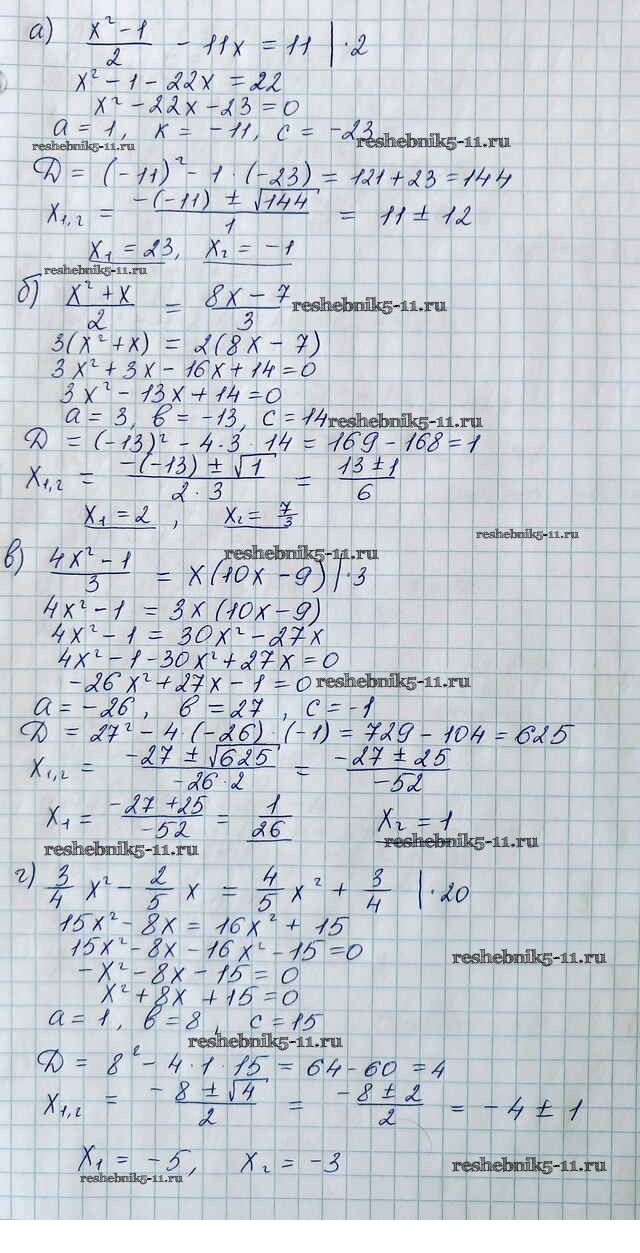 а) (x² − 1)/2 − 11x = 11 | · 2
x² − 1 − 22x = 22
x² − 22x − 23 = 0
a = 1, к = −11, c = −23
reshebnik5-11.ru reshebnik5-11.ru
D = (−11)² − 1 · (−23) = 121 + 23 = 144
x₁,₂ = (−(−11) ± √144)/1 = 11 ± 12
x₁ = 23, x₂ = −1
reshebnik5-11.ru
б) (x² + x)/2 = (8x − 7)/3 reshebnik5-11.ru
3(x² + x) = 2(8x − 7)
3x² + 3x − 16x + 14 = 0
3x² − 13x + 14 = 0
a = 3, в = −13, c = 14 reshebnik5-11.ru
D = (−13)² − 4 · 3 · 14 = 169 − 168 = 1
x₁,₂ = (−(−13) ± √1)/(2 · 3) = (13 ± 1)/6
x₁ = 2, x₂ = 7/3
reshebnik5-11.ru
reshebnik5-11.ru
в) (4x² − 1)/3 = x(10x − 9) | · 3
4x² − 1 = 3x(10x − 9)
4x² − 1 = 30x² − 27x
4x² − 1 − 30x² + 27x = 0
−26x² + 27x − 1 = 0 reshebnik5-11.ru
a = −26, в = 27, c = −1
D = 27² − 4 · (−26) · (−1) = 729 − 104 = 625
x₁,₂ = (−27 ± √625)/(−26 · 2) = (−27 ± 25)/(−52)
x₁ = (−27 + 25)/(−52) = 1/26 x₂ = 1
reshebnik5-11.ru reshebnik5-11.ru
г) 3/4 x² − 2/5 x = 4/5 x² + 3/4 | · 20
15x² − 8x = 16x² + 15
15x² − 8x − 16x² − 15 = 0
reshebnik5-11.ru
−x² − 8x − 15 = 0
x² + 8x + 15 = 0
a = 1, в = 8, c = 15
reshebnik5-11.ru
D = 8² − 4 · 1 · 15 = 64 − 60 = 4
x₁,₂ = (−8 ± √4)/2 = (−8 ± 2)/2 = −4 ± 1
x₁ = −5, x₂ = −3 reshebnik5-11.ru
reshebnik5-11.ru